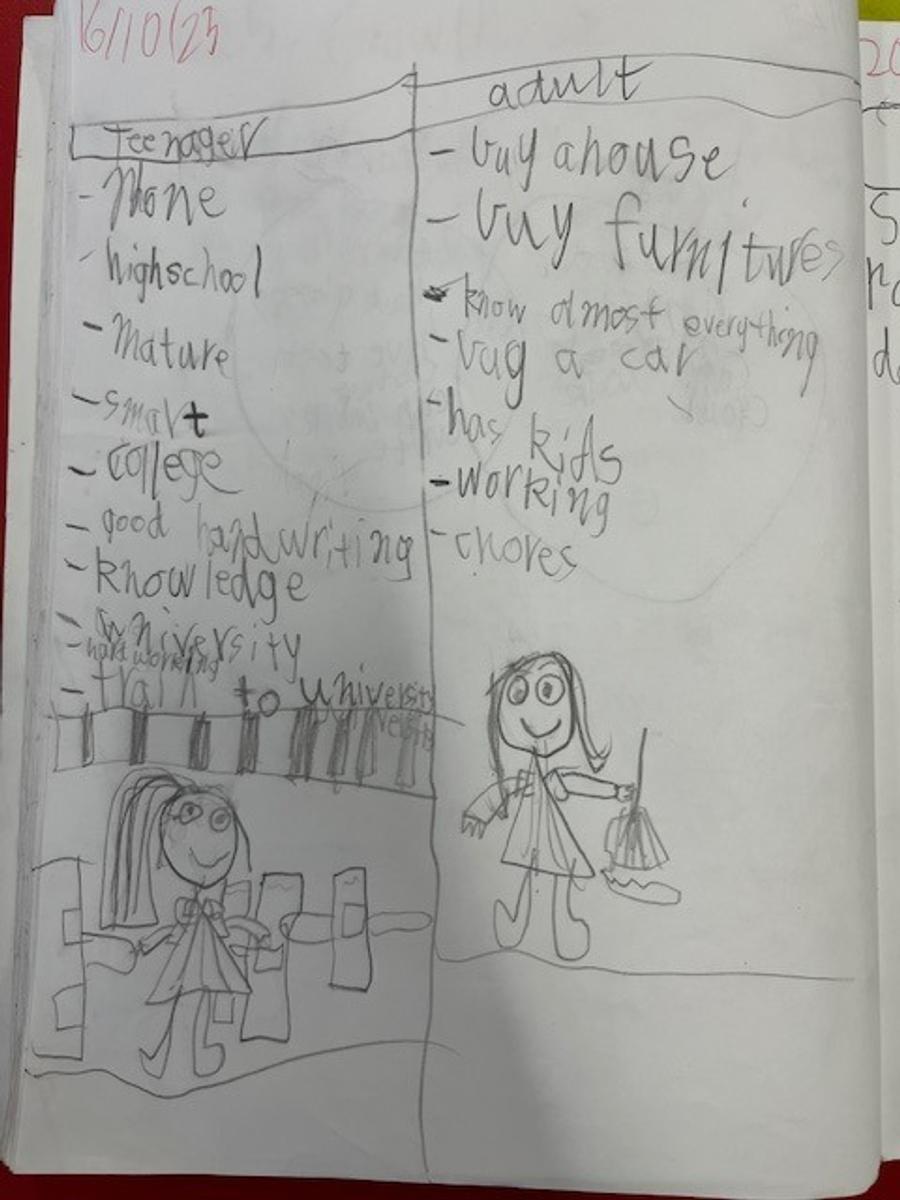 16/10/25
Teenager
- Phone
- highschool
- Mature
- smart
- college
- good handwriting
- knowledge
- university
- hard working
- train to university
adult
- buy ahouse
- buy furnitures
- know almost everything
- buy a car
- has kids
- working
- chores
20